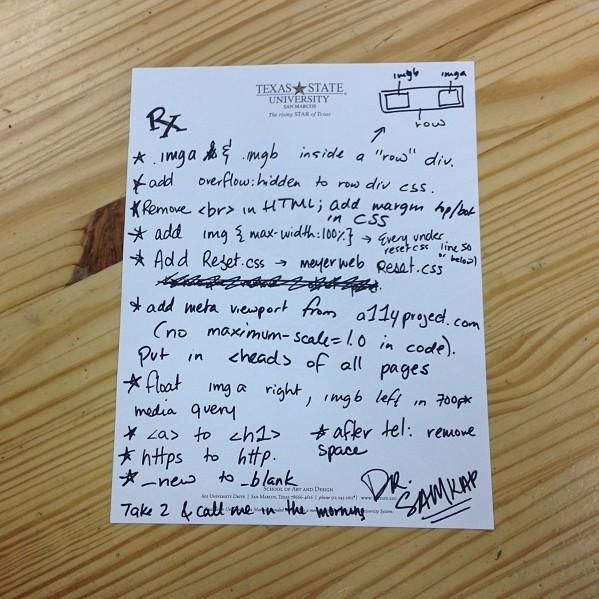 imgb imga
TEXAS STATE
UNIVERSITY
SAN MARCOS
The rising STAR of Texas
row
Rx
* .imga & .imgb inside a "row" div.
* add overflow:hidden to row div css.
* Remove <br> in HTML; add margin top/bot
in CSS
* add img { max-width:100%} → Every under
reset css line 50
or below)
* Add Reset.css → meyerweb Reset.css
* add meta viewport from a11yproject.com
(no maximum-scale=1.0 in code).
Put in <head> of all pages
* float imga right, imgb left in 700px
media query
* <a> to <h1> * after tel: remove
space
* https to http.
* _new to _blank
SCHOOL OF ART AND DESIGN
601 UNIVERSITY DRIVE | SAN MARCOS, TEXAS 78666-4616 | phone
DR. SAMKAP
Take 2 & call me in the morning